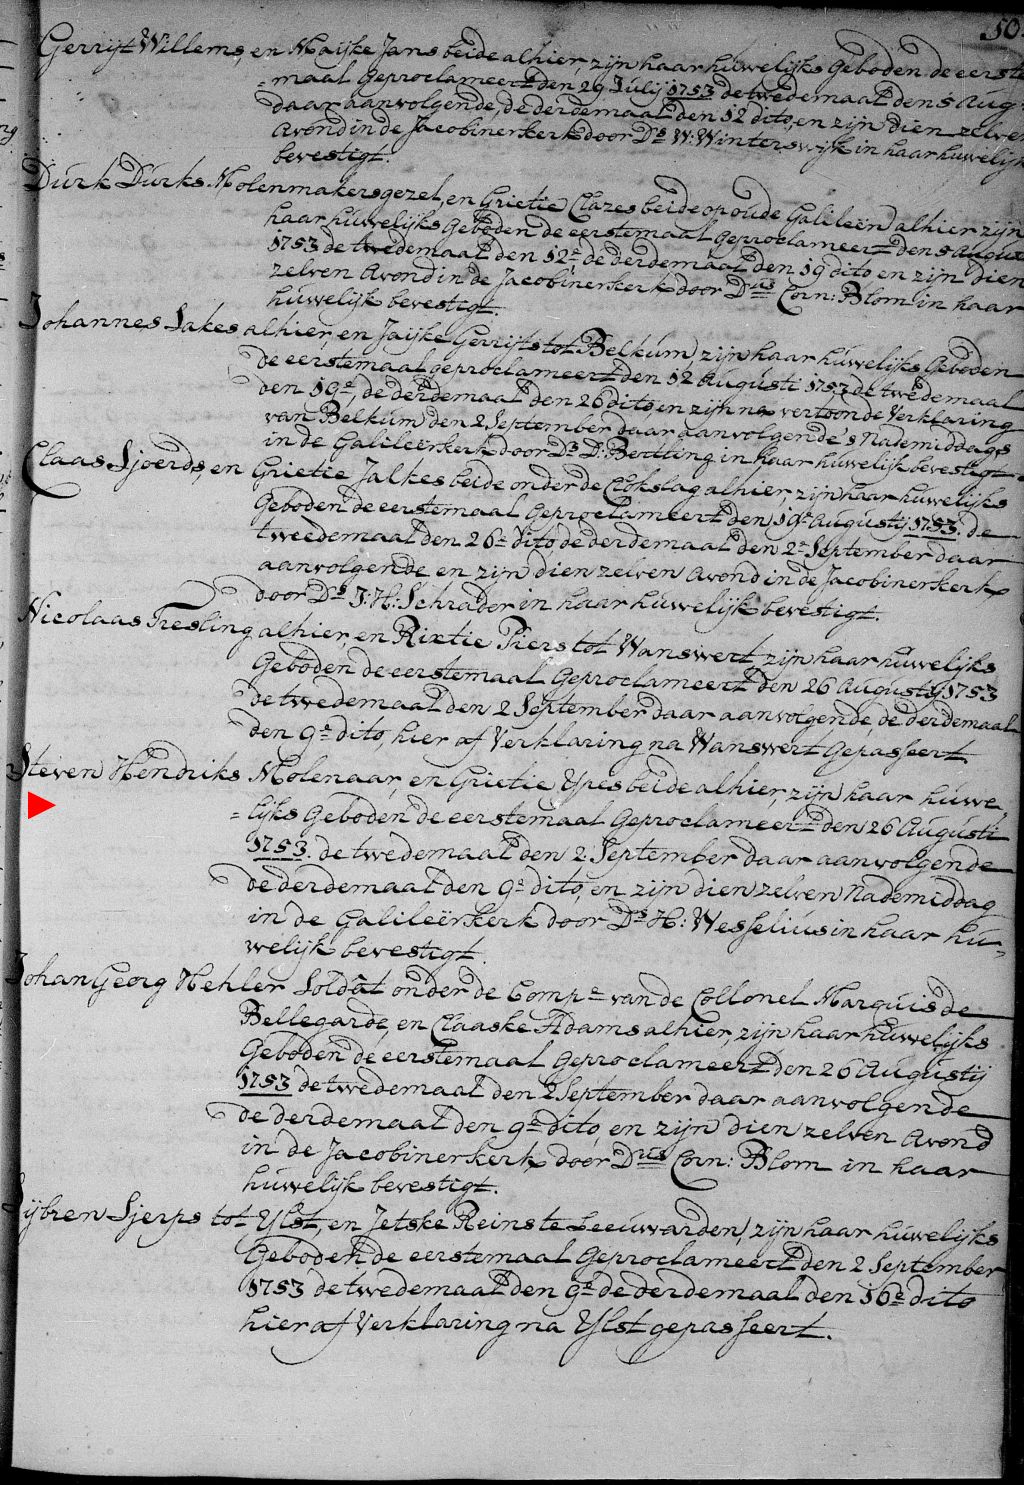 50
Gerrijt Willems, en Maijke Jans beide alhier, zijn haar huwelijks Geboden de eerste
maal Geproclameert den 29 Julij 1753 de twedemaal den 5 Aug
daar aanvolgende, de derdemaal den 12 dito, en zijn dien zelven
Avond in de Jacobinerkerk door Ds W: Winterswijk in haar huwelijk
bevestigt.
Durk Durks Molenmakersgezel, en Grietie Clazes beide op oude Galileën alhier zijn
haar huwelijks Geboden de eerstemaal Geproclameert den 5 August
1753 de twedemaal den 12e, de derdemaal den 19 dito en zijn dien
zelven Avond in de Jacobinerkerk door Dus Corn: Blom in haar
huwelijk bevestigt.
Johannes Sakes alhier, en Jaijke Gerrijts tot Belkum, zijn haar huwelijks Geboden
de eerstemaal geproclameert den 12 Augusti 1753 de twedemaal
den 19e, de derdemaal den 26 dito en zijn na vertoonde Verklaring
van Belkum den 2 September daar aanvolgende 's Nademiddags
in de Galileërkerk door Ds D: Bertling in haar huwelijk bevestigt.
Claas Sjoerds, en Grietie Jalkes beide onder de Clokslag alhier, zijn haar huwelijks
Geboden de eerstemaal Geproclameert den 19e Augustij 1753. de
tweedemaal den 26e dito, de derdemaal den 2e September daar
aanvolgende en zijn dien zelven Avond in de Jacobinerkerk
door Ds J: H: Schrader in haar huwelijk bevestigt.
Nicolaas Tresling alhier, en Rixtie Piers tot Wanswert, zijn haar huwelijks
Geboden de eerstemaal Geproclameert den 26 Augustij 1753
de twedemaal den 2 September daar aanvolgende, de derdemaal
den 9e dito, hier af Verklaring na Wanswert Gepasseert
Steven Hendriks Molenaar, en Grietie Ypes beide alhier, zijn haar huwe
=lijks Geboden de eerstemaal Geproclameert den 26 Augusti
1753. de twedemaal den 2 September daar aanvolgende
de derdemaal den 9e dito, en zijn dien zelven Nademiddag
in de Galileërkerk door Ds H: Wesselius in haar hu=
welijk bevestigt.
Johan Georg Hehler Soldât onder de Compe van de Collonel Marquis de
Bellegarde, en Claaske Adams alhier, zijn haar huwelijks
Geboden de eerstemaal Geproclameert den 26 Augustij
1753 de twedemaal den 2 September daar aanvolgende
de derdemaal den 9e dito, en zijn dien zelven Avond
in de Jacobinerkerk door Dus Corn: Blom in haar
huwelijk bevestigt.
Sijbren Sjerps tot Ylst, en Jetske Reins te Leeuwarden, zijn haar huwelijks
Geboden de eerstemaal Geproclameert den 2 September
1753 de twedemaal den 9e de derdemaal den 16e dito
hier af Verklaring na Ylst gepasseert.